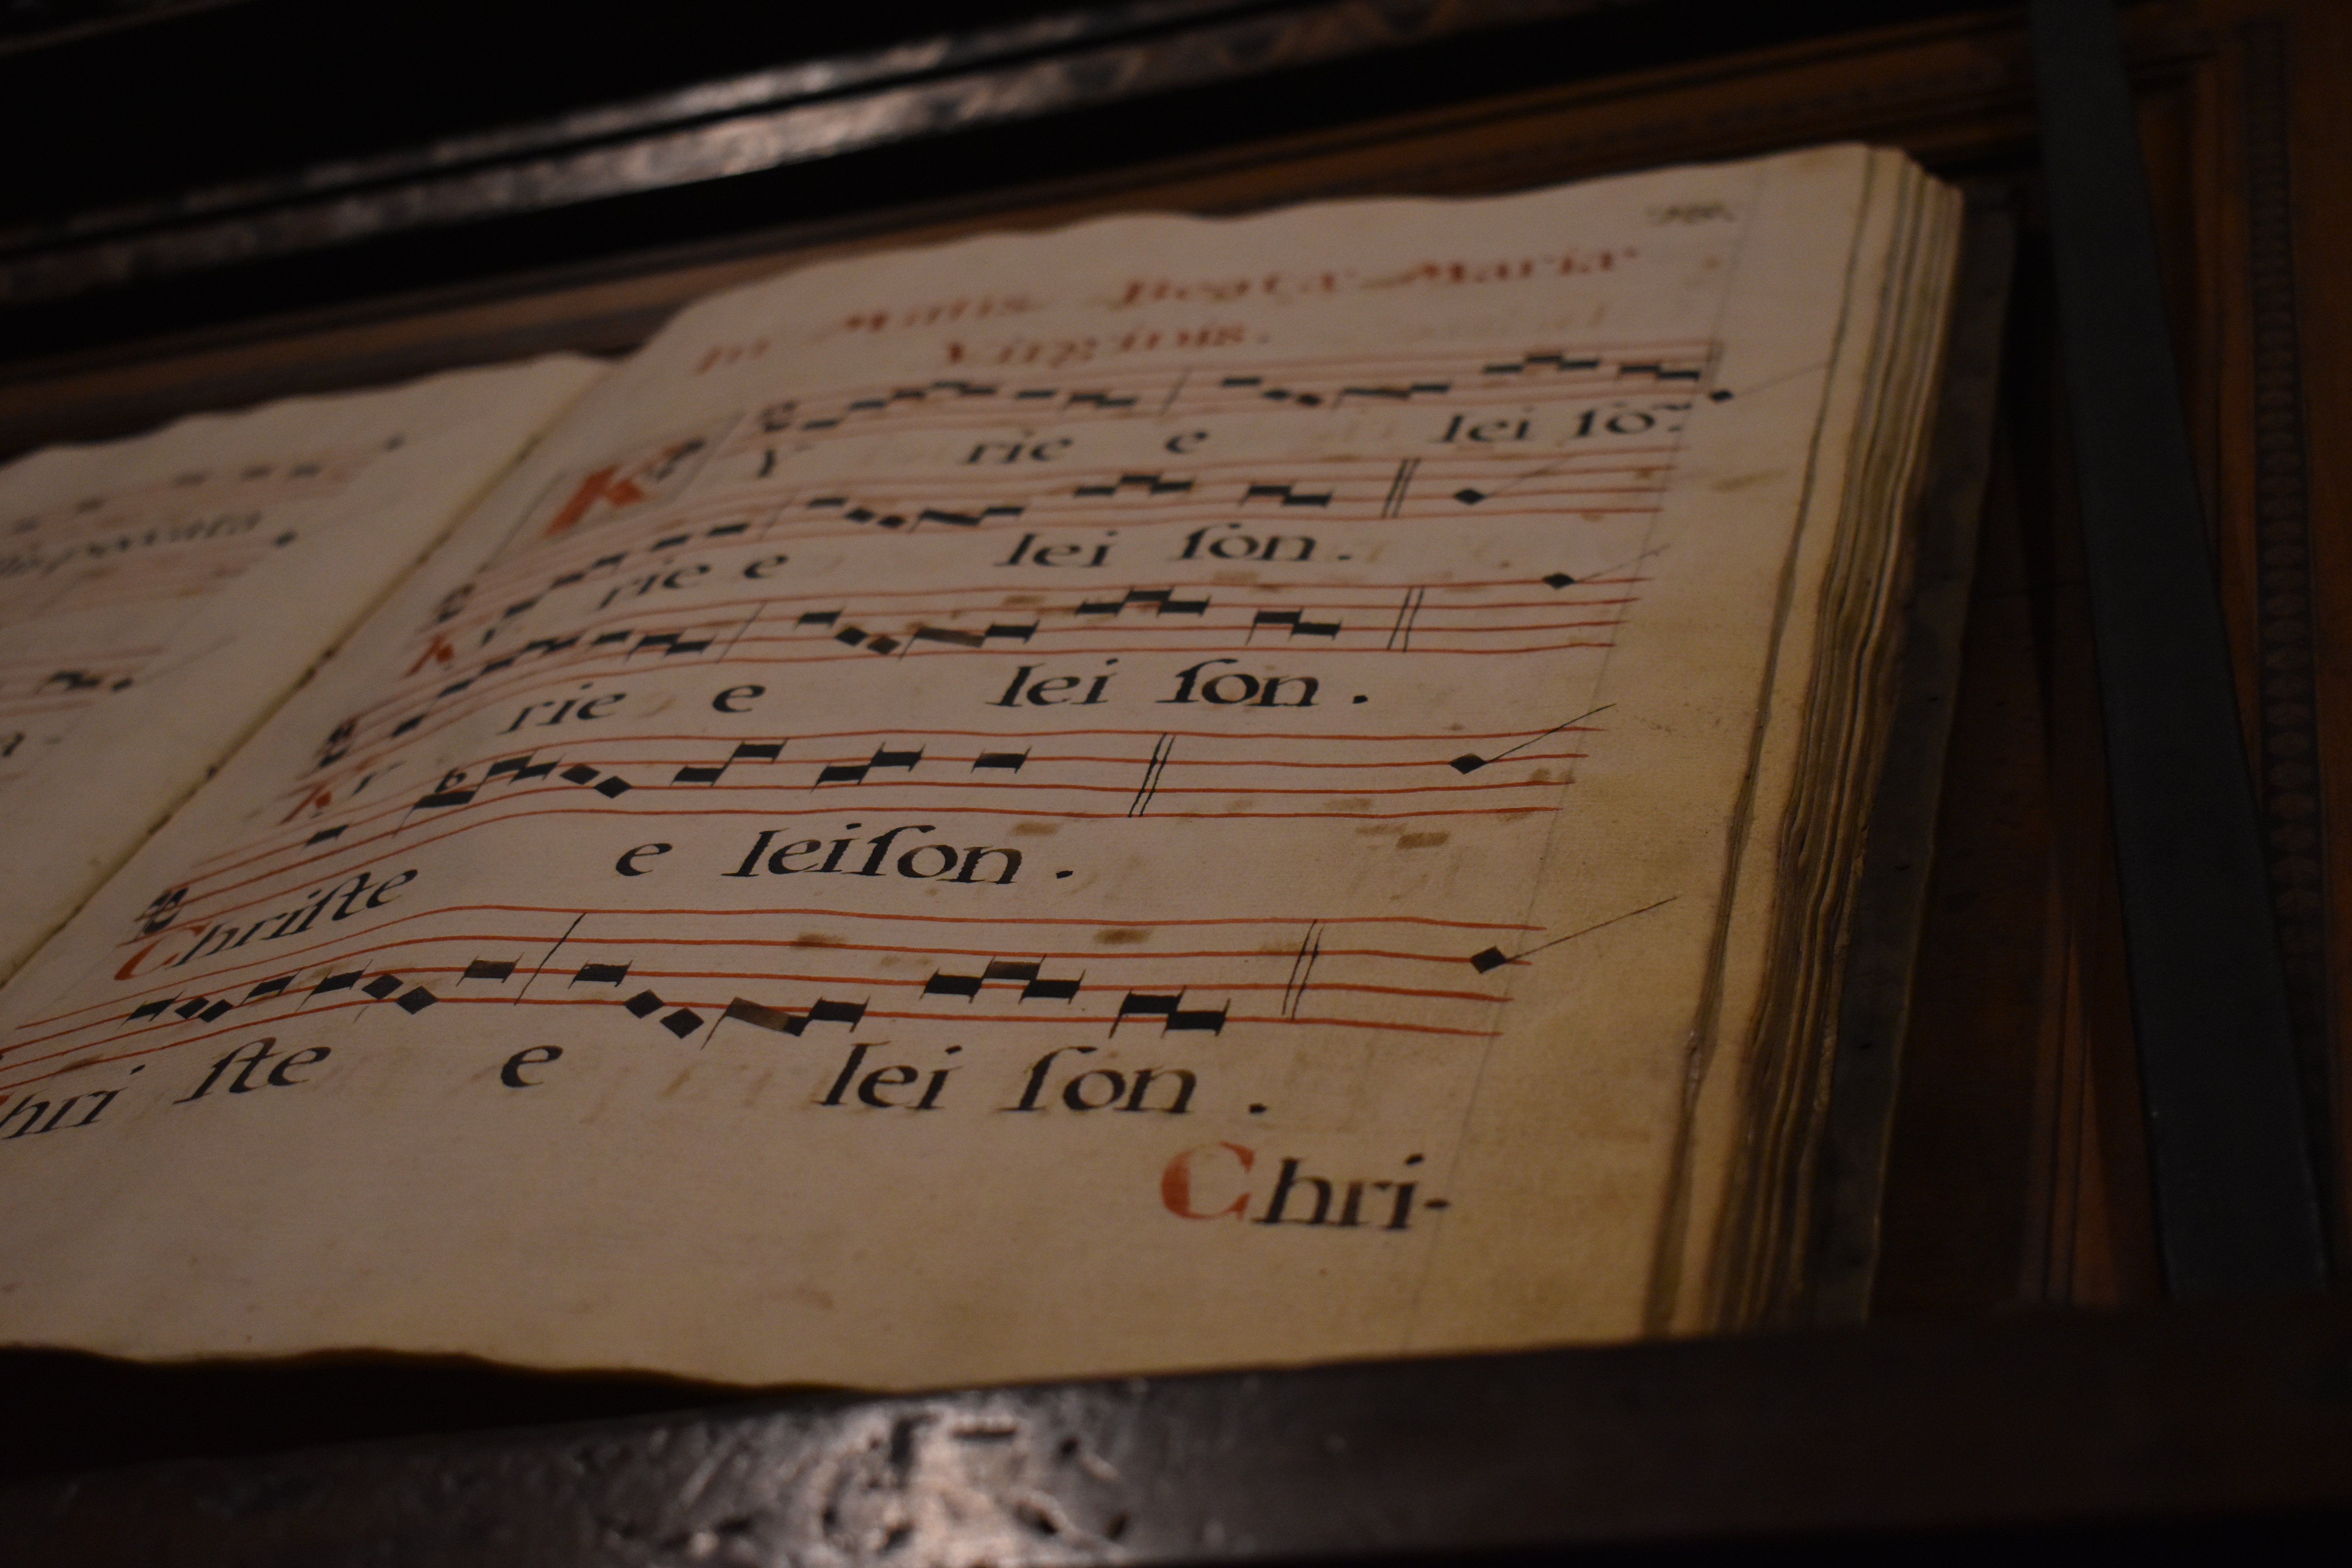 In Missis Beatæ Mariæ
Virginis.
Ky rie e lei ſo~
Ky rie e lei ſon.
Ky rie e lei ſon.
Chriſte e leiſon.
Chri ſte e lei ſon.
Chri-